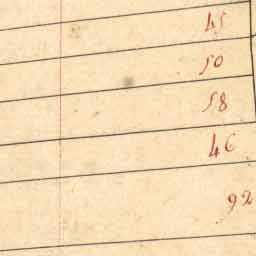 45
50
58
46
92